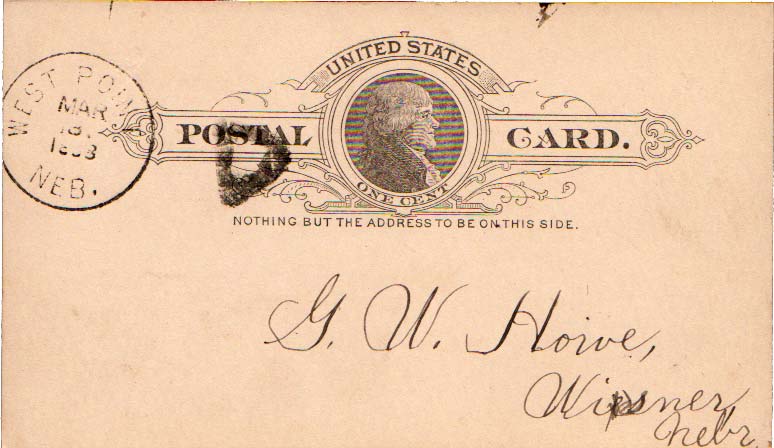 UNITED STATES
POSTAL CARD.
ONE CENT
NOTHING BUT THE ADDRESS TO BE ON THIS SIDE.
WEST POINT
MAR
1888
NEB.
G. W. Howe,
Wisner,
Nebr.